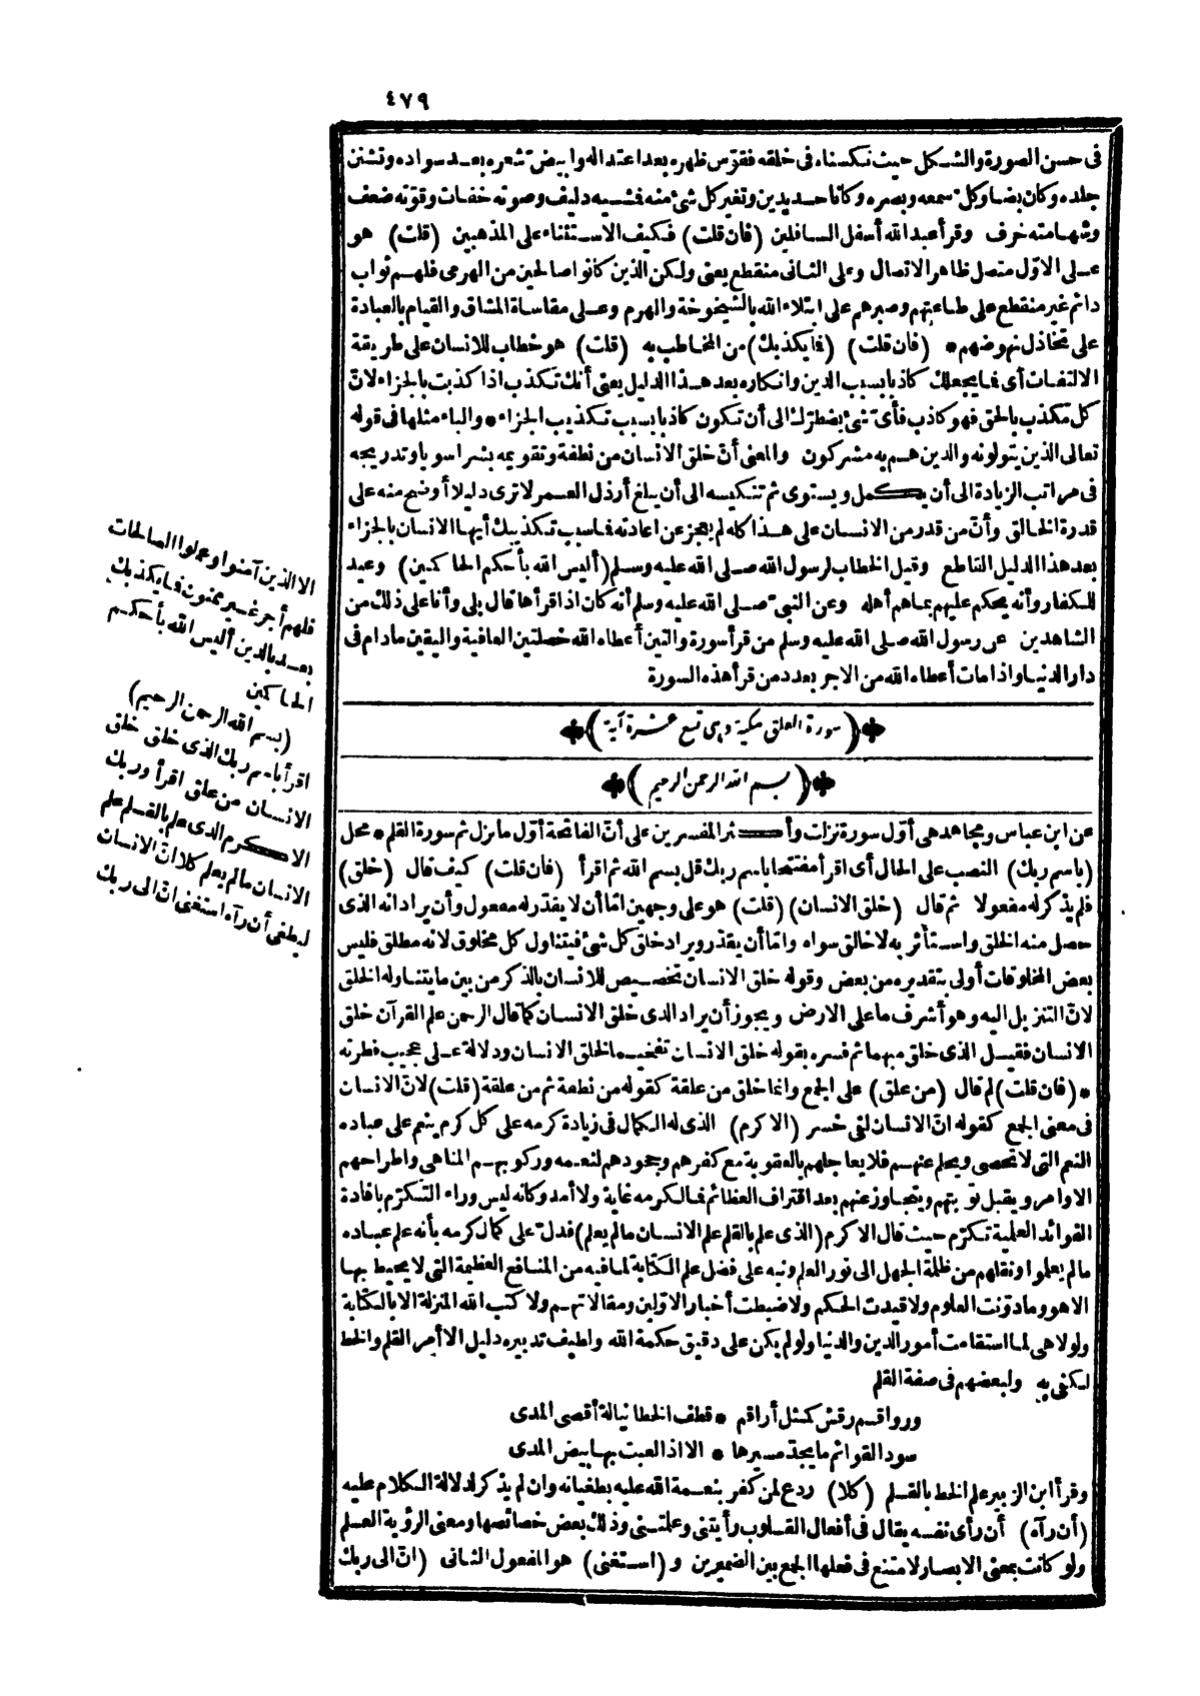 ٤٧٩
فى حسن الصورة والشكل حيث نكسناه فى خلقه فقوّس ظهره بعد اعتداله وابيضّ شعره بعد سواده وتشنن
جلده وكان بضا وكلّ سمعه وبصره وكانا حديدين وتغير كل شئ منه فمشيه دليف وصوته خفات وقوّته ضعف
وشهامته خرف وقرأ عبد الله أسفل السافلين (فان قلت) فكيف الاستثناء على المذهبين (قلت) هو
على الاوّل متصل ظاهر الاتصال وعلى الثانى منقطع يعنى ولكن الذين كانوا صالحين من الهرمى فلهم ثواب
دائم غير منقطع على طاعتهم وصبرهم على ابتلاء الله بالشيخوخة والهرم وعلى مقاساة المشاق والقيام بالعبادة
على تخاذل نهوضهم * (فان قلت) (فما يكذبك) من المخاطب به (قلت) هو خطاب للانسان على طريقة
الالتفات أى فما يجعلك كاذبا بسبب الدين وانكاره بعد هذا الدليل يعنى أنك تكذب اذا كذبت بالجزاء لانّ
كل مكذب بالحق فهو كاذب فأىّ شئ يضطرّك الى أن تكون كاذبا بسبب تكذيب الجزاء * والباء مثلها فى قوله
تعالى الذين يتولونه والذين هم به مشركون والمعنى أنّ خلق الانسان من نطفة وتقويمه بشرا سويا وتدريجه
فى مراتب الزيادة الى أن يكمل ويستوى ثم تنكيسه الى أن يبلغ أرذل العمر لا ترى دليلا أوضح منه على
قدرة الخالق وأنّ من قدر من الانسان على هذا كله لم يعجز عن اعادته فما سبب تكذيبك أيها الانسان بالجزاء
بعد هذا الدليل القاطع وقيل الخطاب لرسول الله صلى الله عليه وسلم (أليس الله بأحكم الحاكمين) وعيد
للكفار وأنه يحكم عليهم بما هم أهله وعن النبىّ صلى الله عليه وسلم أنه كان اذا قرأها قال بلى وأنا على ذلك من
الشاهدين عن رسول الله صلى الله عليه وسلم من قرأ سورة والتين أعطاه الله خصلتين العافية واليقين مادام فى
دار الدنيا واذا مات أعطاه الله من الاجر بعدد من قرأ هذه السورة
(سورة العلق مكية وهى تسع عشرة آية)
(بسم الله الرحمن الرحيم)
عن ابن عباس ومجاهد هى أوّل سورة نزلت وأكثر المفسرين على أنّ الفاتحة أوّل ما نزل ثم سورة القلم * محل
(باسم ربك) النصب على الحال أى اقرأ مفتتحا باسم ربك قل بسم الله ثم اقرأ (فان قلت) كيف قال (خلق)
فلم يذكر له مفعولا ثم قال (خلق الانسان) (قلت) هو على وجهين امّا أن لا يقدّر له مفعول وأن يراد انه الذى
حصل منه الخلق واستأثر به لا خالق سواه وامّا أن يقدّر ويراد خلق كل شئ فيتناول كل مخلوق لانه مطلق فليس
بعض المخلوقات أولى بتقديره من بعض وقوله خلق الانسان تخصيص للانسان بالذكر من بين ما يتناوله الخلق
لانّ التنزيل اليه وهو أشرف ما على الارض ويجوز أن يراد الذى خلق الانسان كما قال الرحمن علم القرآن خلق
الانسان فقيل الذى خلق مبهما ثم فسره بقوله خلق الانسان تفخيما لخلق الانسان ودلالة على عجيب فطرته
* (فان قلت) لم قال (من علق) على الجمع وانما خلق من علقة كقوله من نطفة ثم من علقة (قلت) لانّ الانسان
فى معنى الجمع كقوله انّ الانسان لفى خسر (الاكرم) الذى له الكمال فى زيادة كرمه على كل كرم ينعم على عباده
النعم التى لا تحصى ويحلم عنهم فلا يعاجلهم بالعقوبة مع كفرهم وجحودهم لنعمه وركوبهم المناهى واطراحهم
الاوامر ويقبل توبتهم ويتجاوز عنهم بعد اقتراف العظائم فما لكرمه غاية ولا أمد وكأنه ليس وراء التكرّم بافادة
الفوائد العلمية تكرّم حيث قال الاكرم (الذى علم بالقلم علم الانسان ما لم يعلم) فدلّ على كمال كرمه بأنه علم عباده
ما لم يعلموا ونقلهم من ظلمة الجهل الى نور العلم ونبه على فضل علم الكتابة لما فيه من المنافع العظيمة التى لا يحيط بها
الا هو وما دوّنت العلوم ولا قيدت الحكم ولا ضبطت أخبار الاوّلين ومقالاتهم ولا كتب الله المنزلة الا بالكتابة
ولولا هى لما استقامت أمور الدين والدنيا ولو لم يكن على دقيق حكمة الله ولطيف تدبيره دليل الا أمر القلم والخط
لكفى به ولبعضهم فى صفة القلم
ورواقم رقش كمثل أراقم * قطف الخطا نيالة أقصى المدى
سود القوائم ما يجدّ مسيرها * الا اذا لعبت بها بيض المدى
وقرأ ابن الزبير علم الخط بالقلم (كلا) ردع لمن كفر بنعمة الله عليه بطغيانه وان لم يذكر لدلالة الكلام عليه
(أن رآه) أن رأى نفسه يقال فى أفعال القلوب رأيتنى وعلمتنى وذلك بعض خصائصها ومعنى الرؤية العلم
ولو كانت بمعنى الابصار لامتنع فى فعلها الجمع بين الضميرين و (استغنى) هو المفعول الثانى (انّ الى ربك
الا الذين آمنوا وعملوا الصالحات
فلهم أجر غير ممنون فما يكذبك
بعد بالدين أليس الله بأحكم
الحاكمين
(بسم الله الرحمن الرحيم)
اقرأ باسم ربك الذى خلق خلق
الانسان من علق اقرأ وربك
الاكرم الذى علم بالقلم علم
الانسان ما لم يعلم كلا انّ الانسان
ليطغى أن رآه استغنى انّ الى ربك